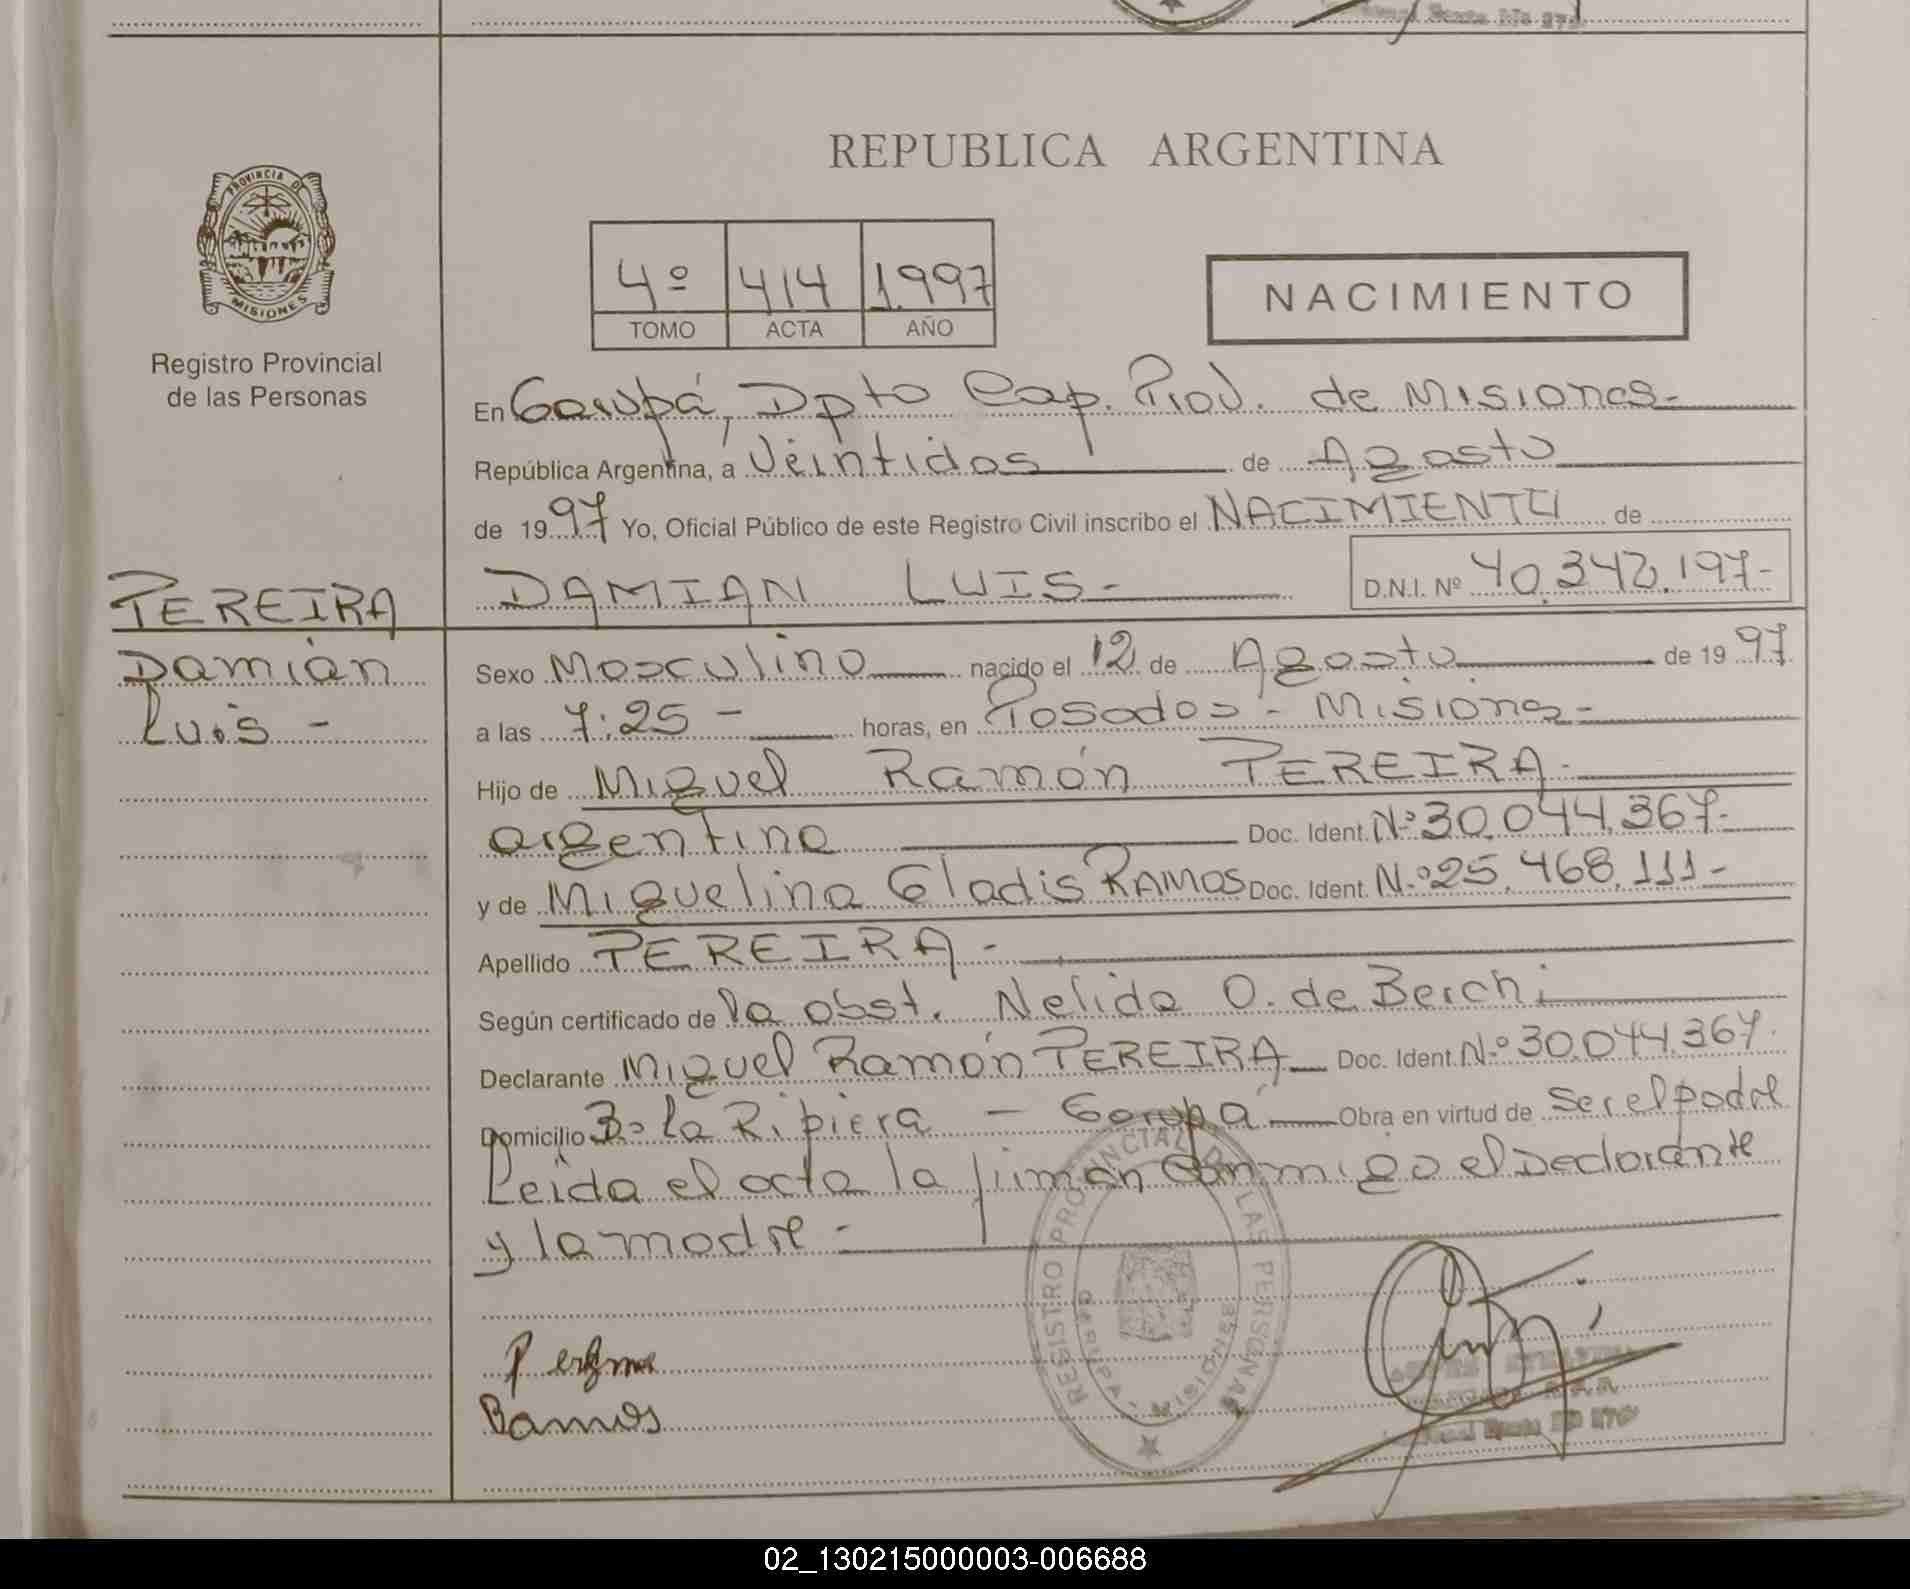 PROVINCIA DE
MISIONES
Registro Provincial
de las Personas
PEREIRA
Damián
Luis -
REPUBLICA ARGENTINA
4º 414 1.997
TOMO ACTA AÑO
NACIMIENTO
En Garupá, Dpto Cap. Prov. de Misiones-
República Argentina, a Veintidos de Agosto
de 19 97 Yo, Oficial Público de este Registro Civil inscribo el NACIMIENTO de
DAMIAN LUIS - D.N.I. Nº 40.342.197-
Sexo Masculino nacido el 12 de Agosto de 19 97
a las 7:25 - horas, en Posadas - Misiones -
Hijo de Miguel Ramón PEREIRA -
argentino Doc. Ident. N.º 30.044.367-
y de Miguelina Gladis RAMOS Doc. Ident. N.º 25.468.111-
Apellido PEREIRA -
Según certificado de la obst. Nelida O. de Berchi
Declarante Miguel Ramón PEREIRA Doc. Ident. N.º 30.044.367.
Domicilio Bº la Ribiera - Garupá Obra en virtud de Ser el padre
Leida el acta la firman conmigo el Declarante
y la madre -
REGISTRO PROVINCIAL DE LAS PERSONAS
GARUPA - MISIONES
Ramos
02_130215000003-006688